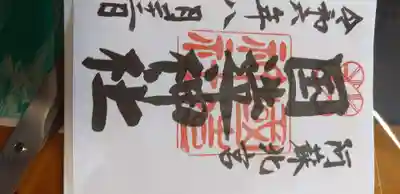 阿蘇北宮
国造神社
令和六年八月 日